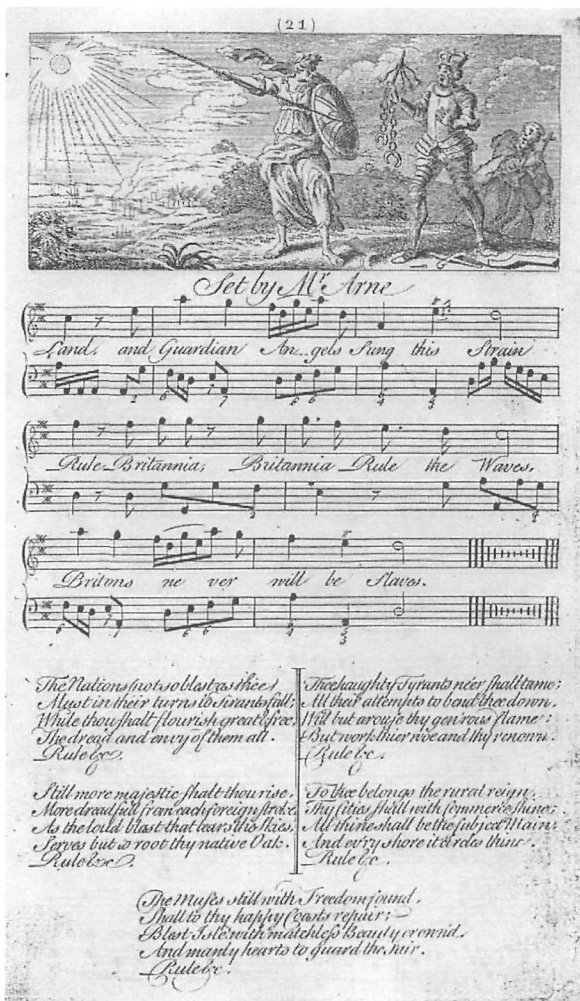 (21)
Set by Mr Arne
Land, and Guardian An--gels Sung this Strain
Rule Britannia, Britannia Rule the Waves,
Britons ne ver will be Slaves.
The Nations (not so blest as thee)
Must in their turns to Tirants fall;
While thou shalt flourish great & free
The dread and envy of them all.
Rule &c.
Still more majestic shalt thou rise,
More dreadfull from each foreign stroke
As the loud blast that tears the Skies,
Serves but to root thy native Oak.
Rule &c.
Thee haughty Tyrants ne'er shall tame:
All their attempts to bend thee down,
Will but arouse thy gen'rous flame:
But work thier woe and thy renown.
Rule &c.
To thee belongs the rural reign,
Thy Cities shall with Commerce shine;
All thine shall be the subject Main:
And ev'ry shore it circles thine
Rule &c.
The Muses still with Freedom found,
Shall to thy happy Coasts repair:
Blest Isle! with matchless Beauty crown'd,
And manly hearts to guard the fair.
Rule &c.